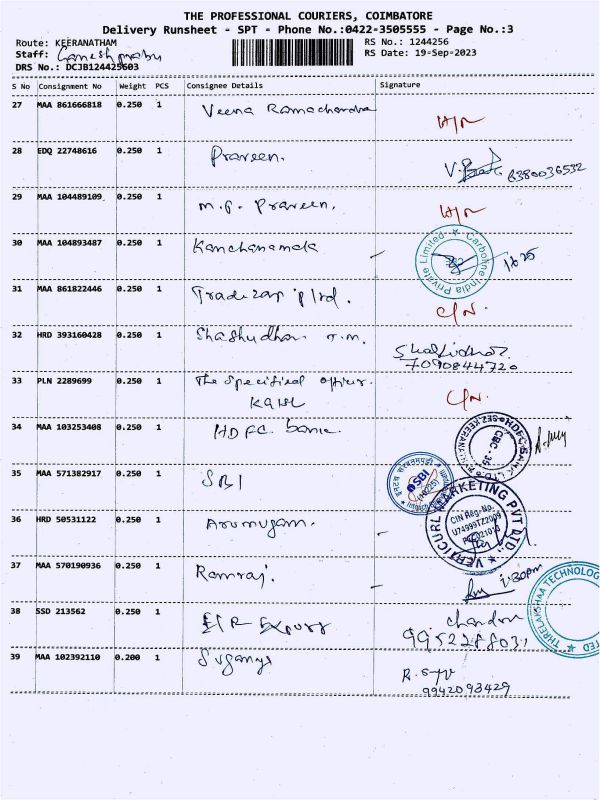 THE PROFESSIONAL COURIERS, COIMBATORE
Delivery Runsheet - SPT - Phone No.:0422-3505555 - Page No.:3
Route: KEERANATHAM RS No.: 1244256
Staff: Ganesh prabu RS Date: 19-Sep-2023
DRS No.: DCJB124425603
S No Consignment No Weight PCS Consignee Details Signature
27 MAA 861666818 0.250 1 Veena Ramachandra
28 EDQ 22748616 0.250 1 Praveen. 8380036532
29 MAA 104489109 0.250 1 M.G. Praveen.
30 MAA 104893487 0.250 1 Kanchanamala
Carboline India Private Limited
31 MAA 861822446 0.250 1 Tradezap p ltd.
C/N.
32 HRD 393160428 0.250 1 Shashudhar T.M. Shashidhar.
7090844720
33 PLN 2289699 0.250 1 The Specified officer. C/N.
34 MAA 103253408 0.250 1 HDFC bank
HDFC BANK LTD
CBC-35
35 MAA 571382917 0.250 1 SBI
SBI
36 HRD 50531122 0.250 1 Arumugam.
VERTICURL MARKETING PVT LTD
CIN Reg-No.
U74999TZ2009
37 MAA 570190936 0.250 1 Ramraj. 1:30pm
THRELAKSHAA TECHNOLOG
38 SSD 213562 0.250 1 Export Chandra
9952288031
39 MAA 102392110 0.200 1 Suganya
9942093429